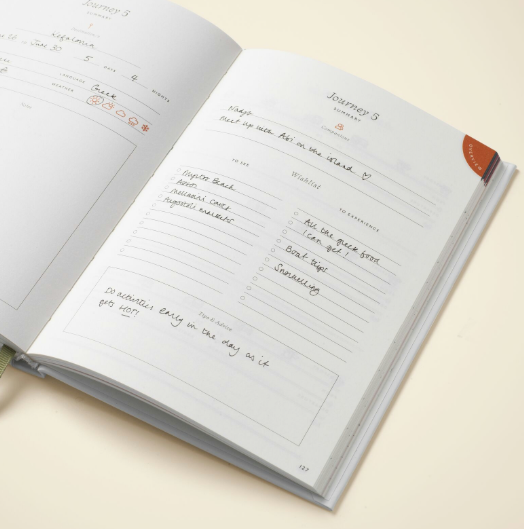 Journey 5
SUMMARY
Kefalonia
June 30
5 DAYS 4 NIGHTS
LANGUAGE Greek
WEATHER
Journey 5
SUMMARY
Companions
Meet up with Abi on the island ♡
Wishlist
TO SEE
Myrtos Beach
Assos
Melissani Caves
Argostoli markets
TO EXPERIENCE
All the greek food
I can get!
Boat trips
Snorkelling
Tips & Advice
Do activities early in the day as it
gets HOT!
OVERVIEW
127